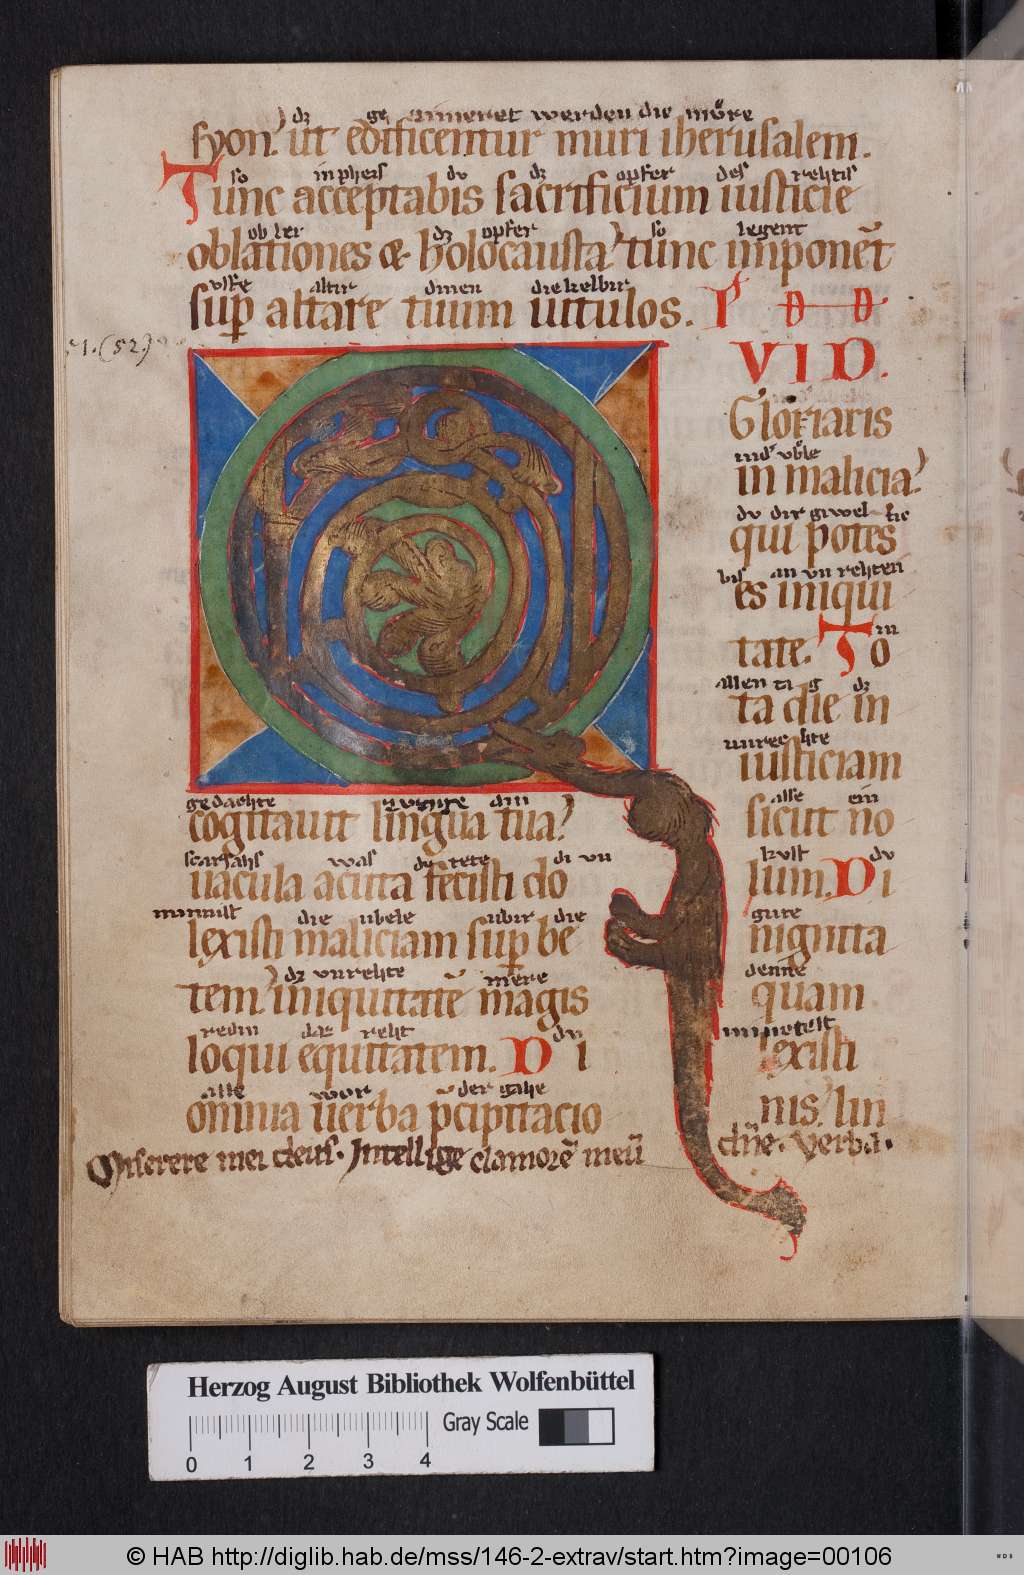 dz ge zimeret werden die mőre
syon. ut edificentur muri iherusalem.
so in pheis du dz opfer des rehtis
Tunc acceptabis sacrificium iusticie
ob ler dz opfer so legent
oblationes & holocausta, tunc imponēt
uffe altir dinen die kelbir
sup̄ altare tuum uitulos. P
51. (52.)
VID.
Gloriaris
in malicia?
du dir giwel
qui potes
bis an un rehten
es iniqui
in
tate. To
allen ta g dz
ta die in
unrechte
iusticiam
gedachte zunge din alse ein
cogitauit lingua tua? sicut no
scarsahs was du tete di un du
uacula acuta fecisti do lum. Di
minnist die ubele ubir die gute
lexisti maliciam sup̄ be nignita
dz unrehte mere denne
tem, iniquitatē magis quam
redin daz reht du
loqui equitatem. Di lexisti
alle wort der gahe
omnia uerba p̄cipitacio nis, lin
Miserere mei deus. Intellige clamorē meū dn̄e. Verba.
Herzog August Bibliothek Wolfenbüttel
Gray Scale
0 1 2 3 4
© HAB http://diglib.hab.de/mss/146-2-extrav/start.htm?image=00106